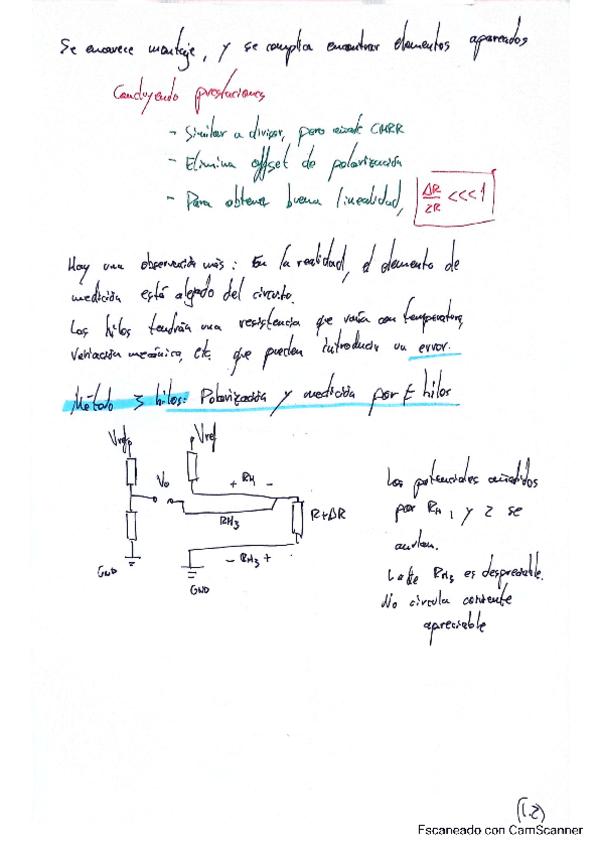 Se encarece montaje, y se complica encontrar elementos apareados
Concluyendo prestaciones
- Similar a divisor, pero existe CMRR
- Elimina offset de polarización
- Para obtener buena linealidad, ΔR/2R <<< 1
Hay una observación más: En la realidad, el elemento de
medición está alejado del circuito.
Los hilos tendrán una resistencia que varía con temperatura,
variación mecánica, etc. que pueden introducir un error.
Método 3 hilos: Polarización y medición por hilos
Vref
Vref
Vo
+ RH -
RH3
R+ΔR
- RH3 +
GND
GND
Los potenciales añadidos
por RH 1 y 2 se
anulan.
La de RH3 es despreciable.
No circula corriente
apreciable
(12)
Escaneado con CamScanner